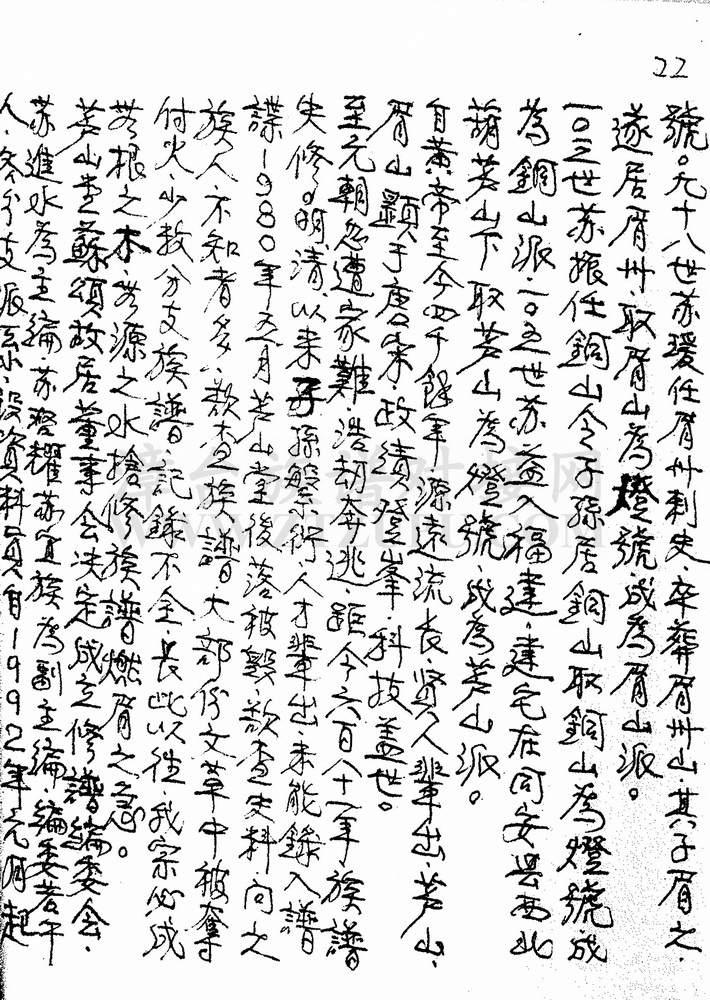 22
號。九十八世苏瓌任眉州刺史、卒葬眉州山、其子眉之、
遂居眉州、取眉山為燈號成為眉山派。
一〇三世苏振任銅山令子孫居銅山取銅山為燈號成
為銅山派、一〇五世苏益入福建、建宅在同安县西北
葫芦山下取芦山為燈號、成為芦山派。
自黃帝至今四千餘年源遠流長、贤人辈出、芦山、
眉山顯于唐宋、政績登峯、科技盖世。
至元朝忽遭家難、浩劫奔逃、距今六百八十一年族譜
失修。明、清以来子孫繁衍、人才輩出、未能錄入譜
諜1980年五月芦山堂後落被毀、欲查史料、向之
族人、不知者多、欲查族譜大部份文革中被奪
付火、少数分支族譜、記錄不全、長此以往、我宗必成
无根之木、无源之水搶修族譜燃眉之急。
芦山堂蘇頌故居董事会决定成立修譜編委会、
苏進水為主編苏登耀苏宜族為副主編編委若干
人、各分支派系、設資料員自1992年元月起
漳台族谱对接网
WWW.ZTZUPU.COM